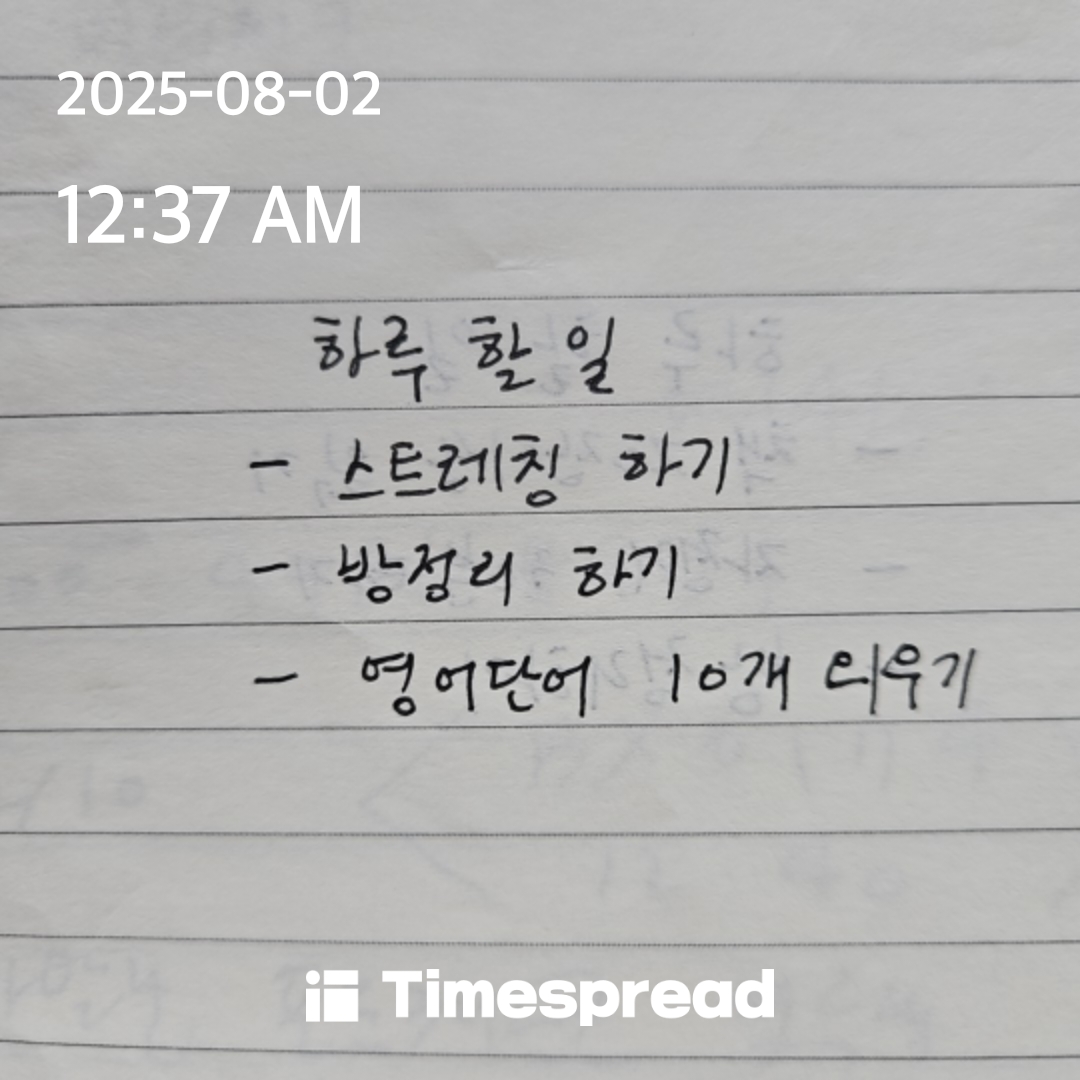 2025-08-02
12:37 AM
하루 할 일
- 스트레칭 하기
- 방정리 하기
- 영어단어 10개 외우기
Timespread